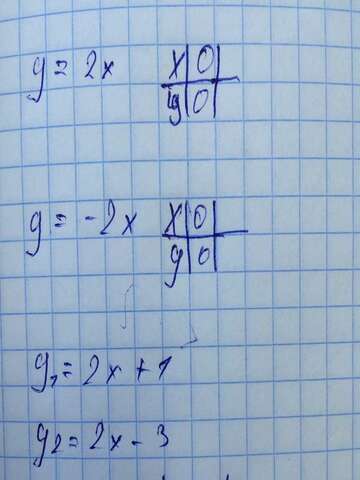 y = 2x
x | 0
y | 0
y = -2x
x | 0
y | 0
y₁ = 2x + 1
y₂ = 2x - 3